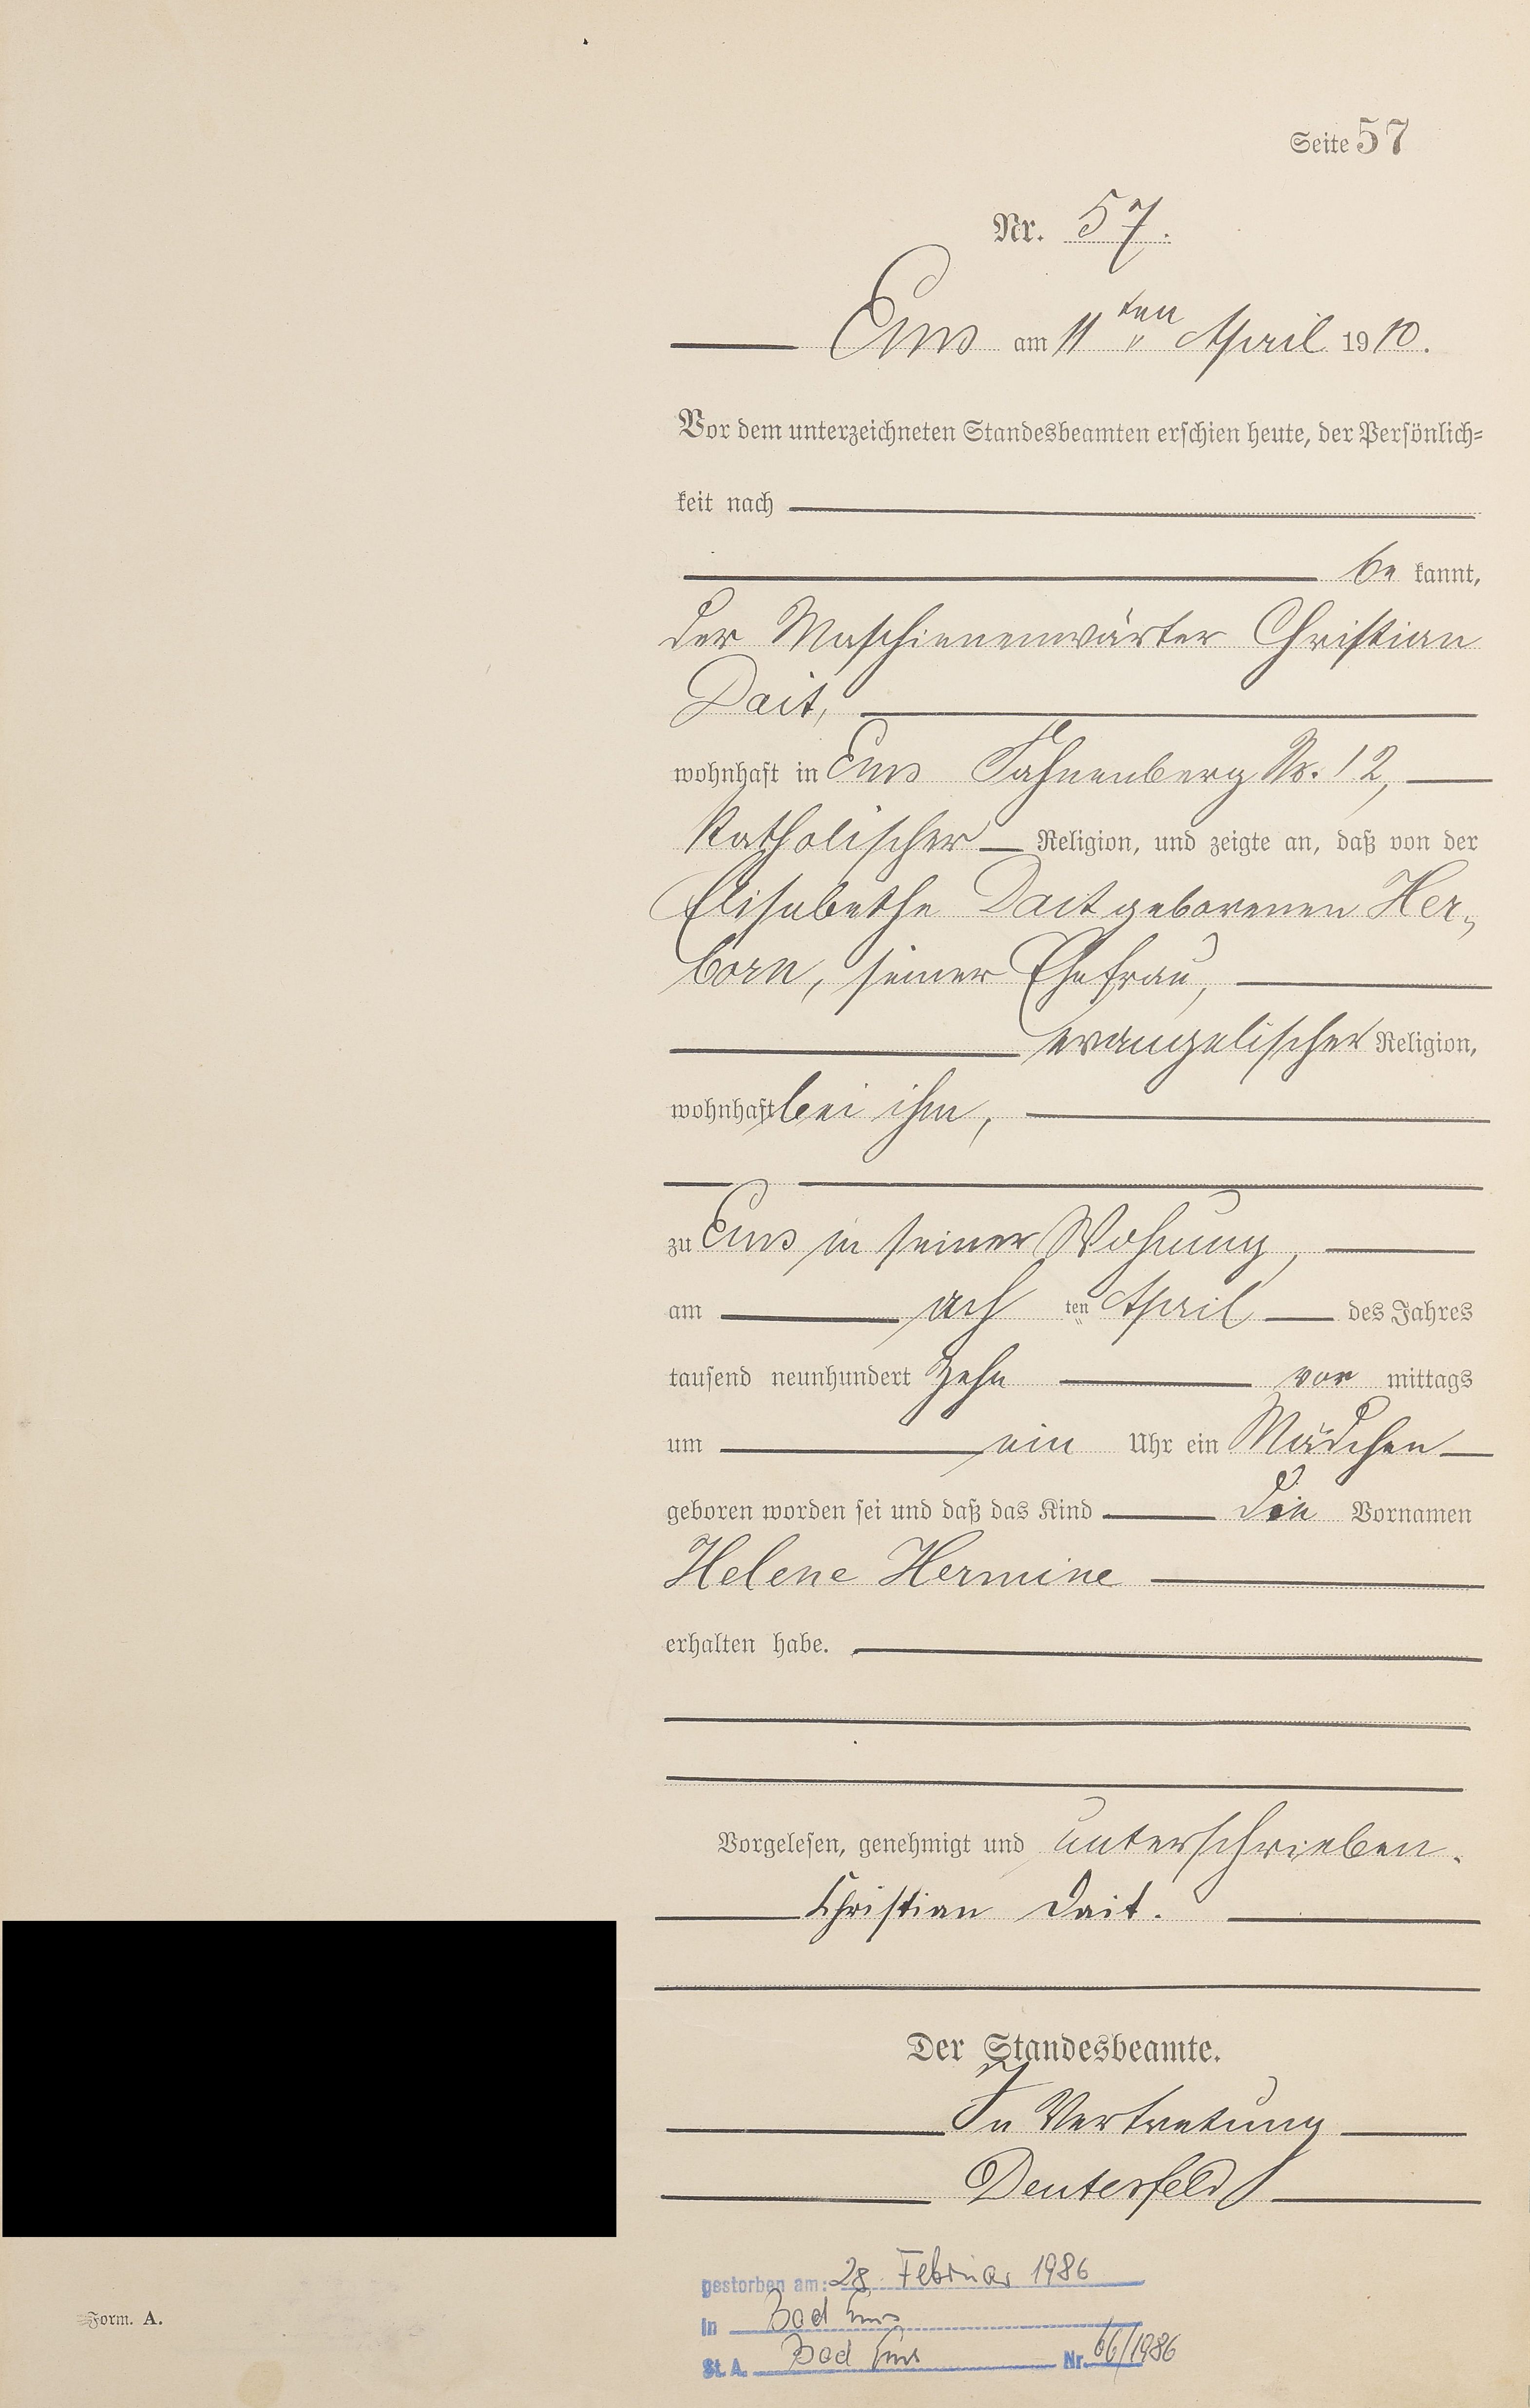 Seite 57
Nr. 57.
Ems am 11 ten April 1910.
Vor dem unterzeichneten Standesbeamten erschien heute, der Persönlich-
keit nach
be kannt,
der Maschinenwärter Christian
Dait,
wohnhaft in Ems Fahnenberg Nr. 12,
katholischer Religion, und zeigte an, daß von der
Elisabethe Dait geborenen Her-
born, seiner Ehefrau,
evangelischer Religion,
wohnhaft bei ihm,
zu Ems in seiner Wohnung,
am ach ten April des Jahres
tausend neunhundert zehn vor mittags
um ein Uhr ein Mädchen
geboren worden sei und daß das Kind die Vornamen
Helene Hermine
erhalten habe.
Vorgelesen, genehmigt und unterschrieben.
Christian Dait.
Der Standesbeamte.
In Vertretung
Deuterfeld
gestorben am: 28. Februar 1986
in Bad Ems
St. A. Bad Ems Nr. 66/1986
Form. A.